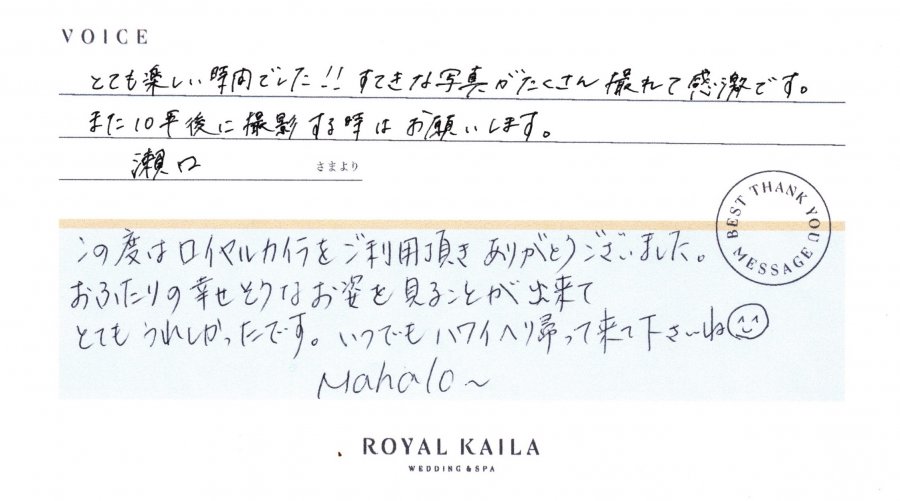 VOICE
とても楽しい時間でした!! すてきな写真がたくさん撮れて感激です。
また10年後に撮影する時はお願いします。
瀬口 さまより
BEST THANK YOU MESSAGE
この度はロイヤルカイラをご利用頂きありがとうございました。
おふたりの幸せそうなお姿を見ることが出来て
とてもうれしかったです。いつでもハワイへ帰って来て下さいね
Mahalo~
ROYAL KAILA
WEDDING & SPA